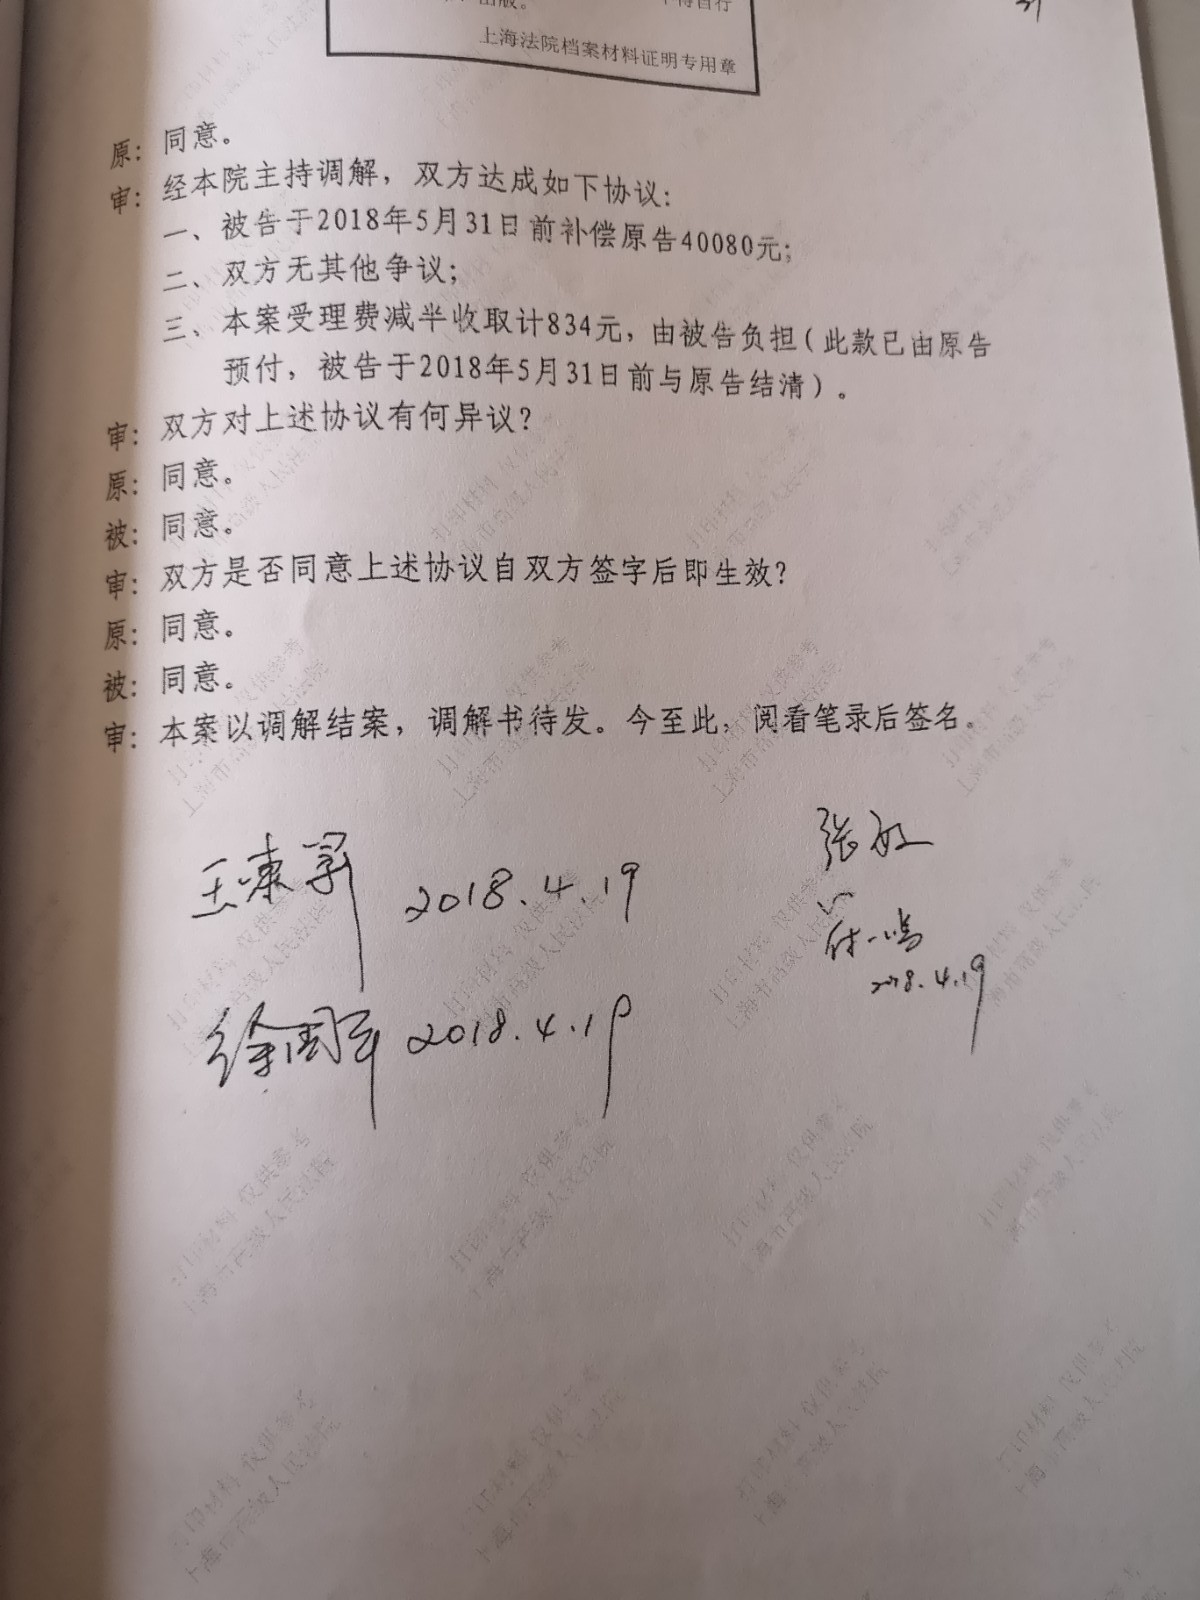 出版。 不得自行
上海法院档案材料证明专用章
原：同意。
审：经本院主持调解，双方达成如下协议：
一、被告于2018年5月31日前补偿原告40080元；
二、双方无其他争议；
三、本案受理费减半收取计834元，由被告负担（此款已由原告
预付，被告于2018年5月31日前与原告结清）。
审：双方对上述协议有何异议？
原：同意。
被：同意。
审：双方是否同意上述协议自双方签字后即生效？
原：同意。
被：同意。
审：本案以调解结案，调解书待发。今至此，阅看笔录后签名。
张敏
2018.4.19
2018.4.19
2018.4.19
打印材料 仅供参考
上海市高级人民法院